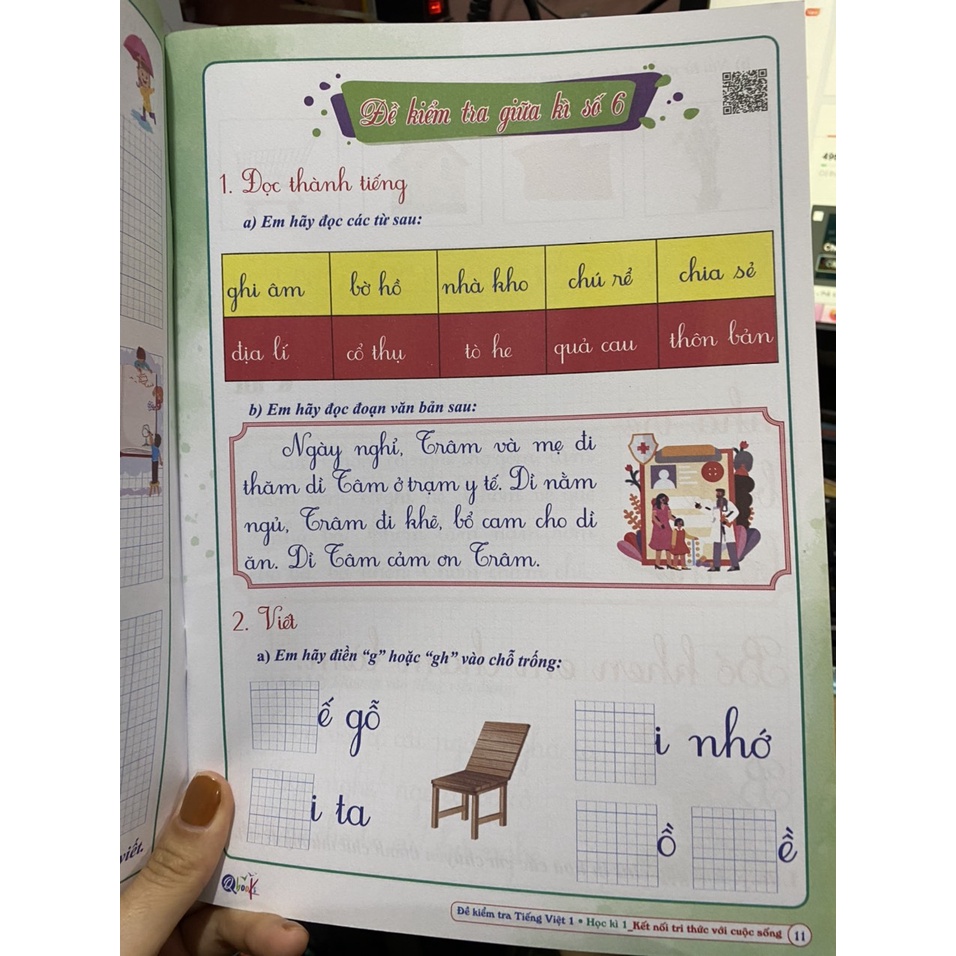 Đề kiểm tra giữa kì số 6
1. Đọc thành tiếng
a) Em hãy đọc các từ sau:
ghi âm bờ hồ nhà kho chú rể chia sẻ
địa lí cổ thụ tò he quả cau thôn bản
b) Em hãy đọc đoạn văn bản sau:
Ngày nghỉ, Trâm và mẹ đi
thăm dì Tâm ở trạm y tế. Dì nằm
ngủ, Trâm đi khẽ, bổ cam cho dì
ăn. Dì Tâm cảm ơn Trâm.
2. Viết
a) Em hãy điền “g” hoặc “gh” vào chỗ trống:
ế gỗ
i nhớ
i ta
ồ ề
viết.
Qbooks
Đề kiểm tra Tiếng Việt 1 • Học kì 1_Kết nối tri thức với cuộc sống 11